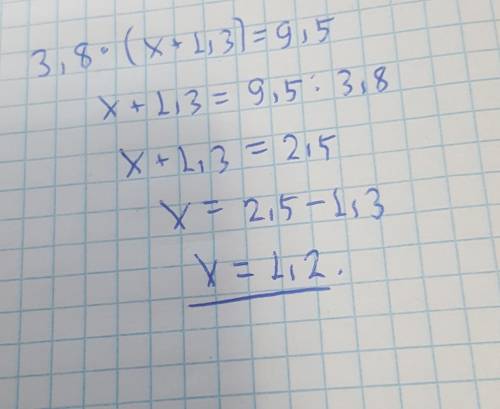 3,8 · (x + 1,3) = 9,5
x + 1,3 = 9,5 : 3,8
x + 1,3 = 2,5
x = 2,5 - 1,3
x = 1,2.